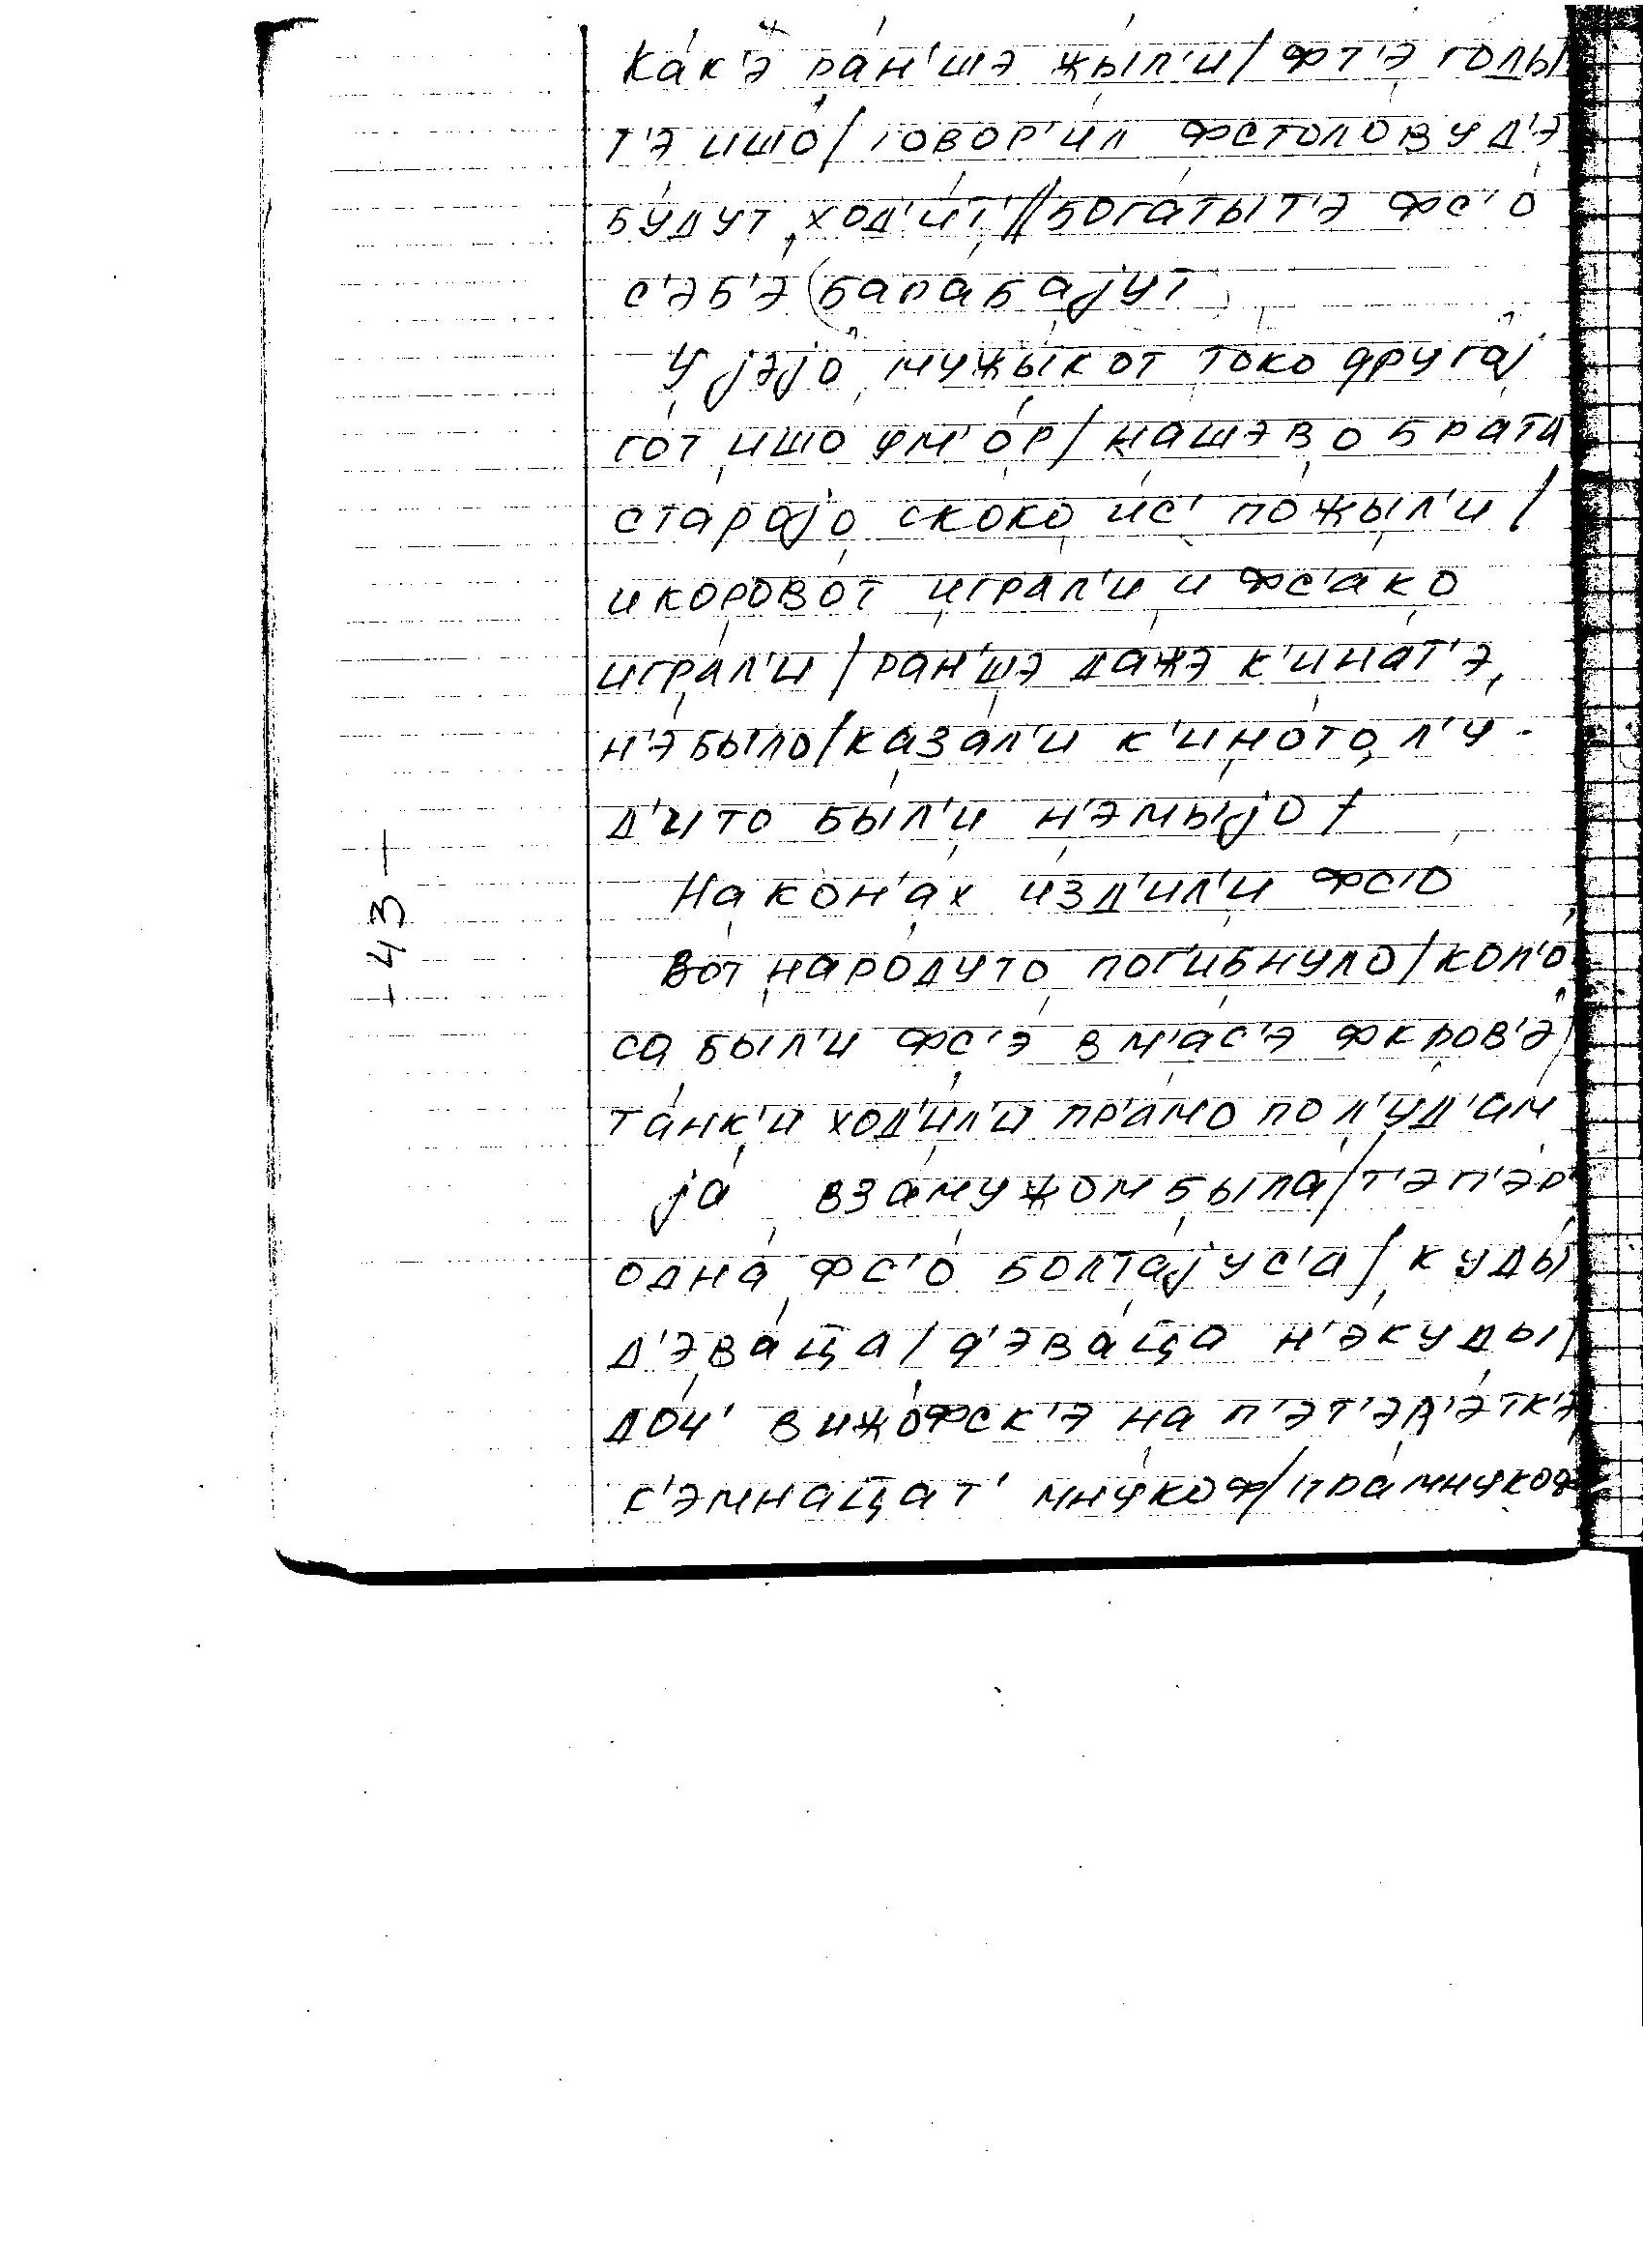 ка́к'э ра́н'шэ жы́л'и / фт'э го́лы
т'э ишо́ / говор'и́л фстоло́ву д'э
бу́дут ход'и́т' // бога́тыт'э фс'о́
с'эб'э́ (бараба́jут
У jэjо́ мужы́кот то́ко друга́j
го́т ишо́ ум'о́р / на́шэво бра́та
ста́раjо ско́ко и́с' по́жыл'и /
и корово́т игра́л'и и фс'а́ко
игра́л'и / ра́н'шэ да́жэ к'ина́т'э
н'э́было / каза́л'и к'ино́то л'у́-
д'ито бы́л'и н'эмы́jо /
На ко́н'ах и́зд'ил'и фс'о
Во́т наро́дуто пог'и́бнуло / кол'о́
са бы́л'и фс'э в м'а́с'э фкро́в'э /
та́нк'и ход'и́л'и пр'а́мо по л'у́д'ам
jа́ вза́мужом была́ / т'эп'э́р'
одна́ фс'о́ болта́jус'а / куды́
д'эва́ца / д'эва́ца н'э́куды /
до́ч' в ижо́фск'э на п'эт'эл'э́тк'э
с'эмна́цат' мну́коф / пра́мнукоф
- 43 -